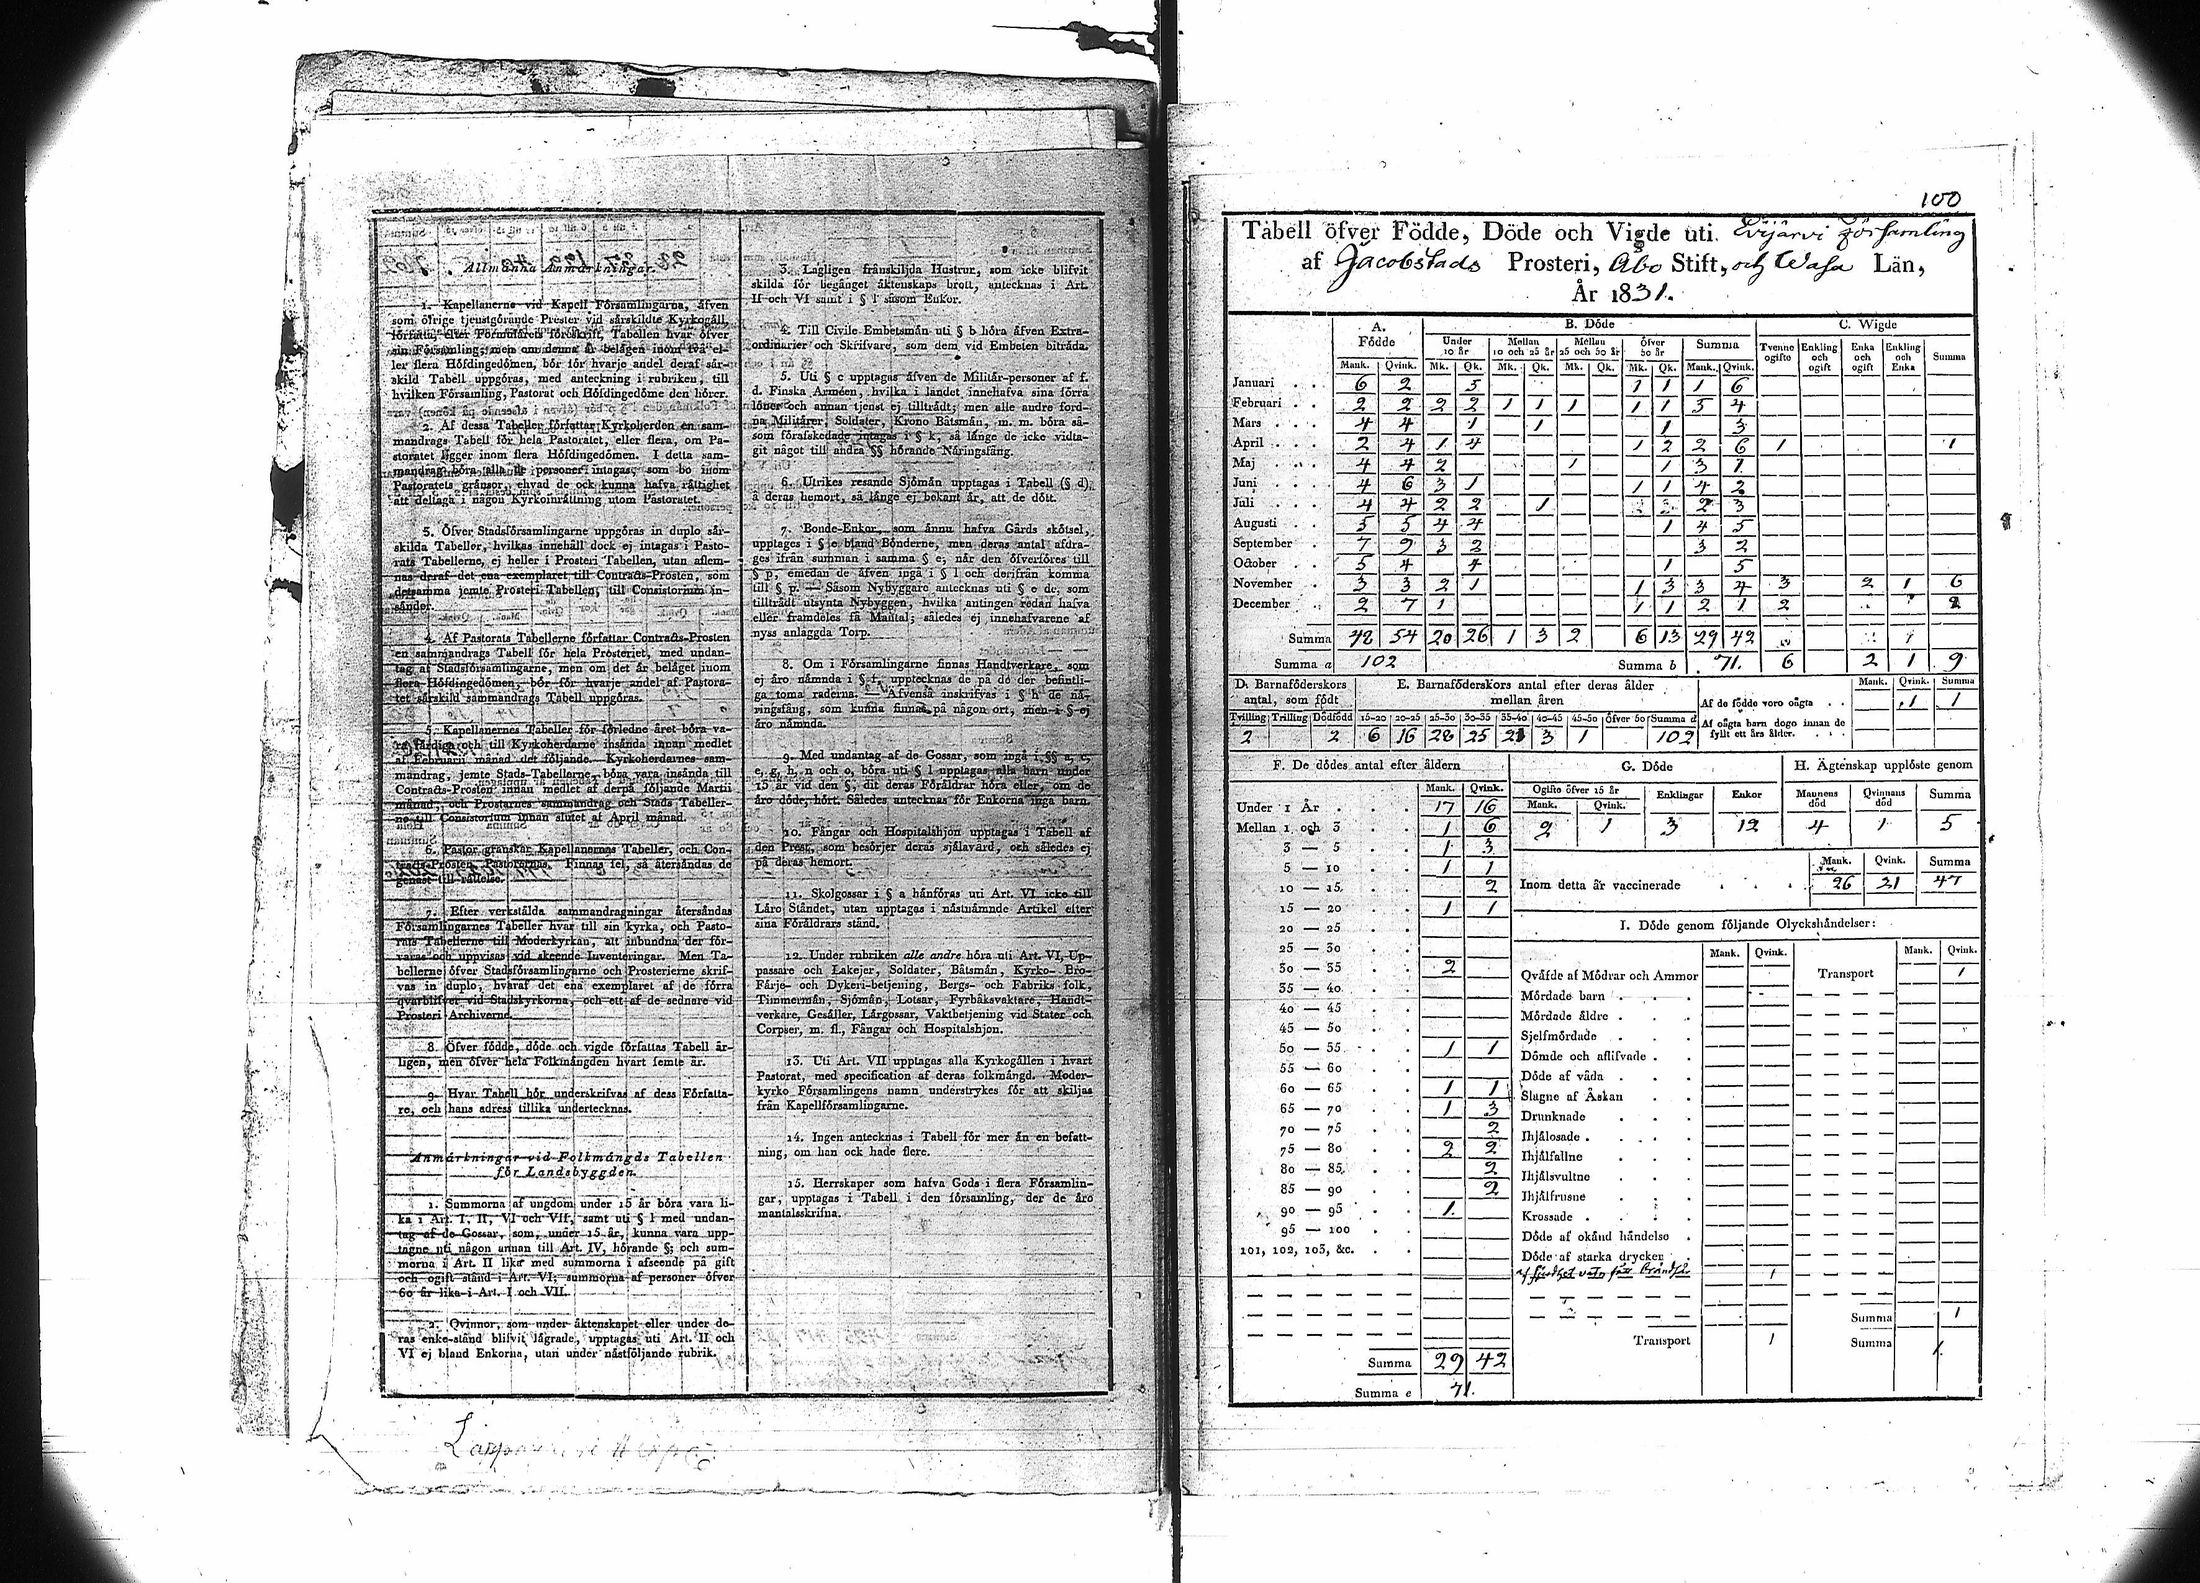 Allmänna Anmärkningar.
1. Kapellanerne vid Kapell Församlingarna, äfven
som öfrige tjenstgörande Prester vid särskildte Kyrkogäll,
författa, efter Formulärets föreskrift, Tabellen hvar öfver
sin Församling; men om denna är belägen inom två el-
ler flera Höfdingedömen, bör för hvarje andel deraf sär-
skild Tabell uppgöras, med anteckning i rubriken, till
hvilken Församling, Pastorat och Höfdingedöme den hörer.
2. Af dessa Tabeller författar Kyrkoherden en sam-
mandrags Tabell för hela Pastoratet, eller flera, om Pa-
storatet ligger inom flera Höfdingedömen. I detta sam-
mandrag böra alla de personer intagas, som bo inom
Pastoratets gränsor, ehvad de ock kunna hafva rättighet
att deltaga i någon Kyrkoinrättning utom Pastoratet.
3. Öfver Stadsförsamlingarne uppgöras in duplo sär-
skilda Tabeller, hvilkas innehåll dock ej intages i Pasto-
rats Tabellerne, ej heller i Prosteri Tabellen, utan aflem-
nas deraf det ena exemplaret till Contracts-Prosten, som
detsamma jemte Prosteri Tabellen, till Consistorium in-
sänder.
4. Af Pastorats Tabellerne författar Contracts-Prosten
en sammandrags Tabell för hela Prosteriet, med undan-
tag af Stadsförsamlingarne, men om det är beläget inom
flera Höfdingedömen, bör för hvarje andel af Pastora-
tet särskild sammandrags Tabell uppgöras.
5. Kapellanernes Tabeller för förledne året böra va-
ra färdiga och till Kyrkoherdarne insända innan medlet
af Februarii månad det följande. Kyrkoherdarnes sam-
mandrag, jemte Stads-Tabellerne, böra vara insända till
Contracts-Prosten innan medlet af derpå följande Martii
månad; och Prostarnes sammandrag och Stads Tabeller-
ne till Consistorium innan slutet af April månad.
6. Pastor granskar Kapellanernes Tabeller, och Con-
tracts-Prosten Pastorernas. Finnas fel, så återsändas de
genast till rättelse.
7. Efter verkställda sammandragningar återsändas
Församlingarnes Tabeller hvar till sin kyrka, och Pasto-
rats Tabellerne till Moderkyrkan, att inbundna der för-
varas och uppvisas vid skeende Inventeringar. Men Ta-
bellerne öfver Stadsförsamlingarne och Prosterierne skrif-
vas in duplo, hvaraf det ena exemplaret af de förra
qvarblifver vid Stadskyrkorna, och ett af de sednare vid
Prosteri Archiverne.
8. Öfver födde, döde och vigde författas Tabell är-
ligen, men öfver hela Folkmängden hvart femte år.
9. Hvar Tabell bör underskrifvas af dess Författa-
re, och hans adress tillika undertecknas.
Anmärkningar vid Folkmängds Tabellen
för Landsbyggden.
1. Summorna af ungdom under 15 år böra vara li-
ka i Art. I, II, VI och VII, samt uti § l med undan-
tag af de Gossar, som, under 15 år, kunna vara upp-
tagne uti någon annan till Art. IV, hörande §; och sum-
morna i Art. II lika med summorna i afseende på gift
och ogift stånd i Art. VI; summorna af personer öfver
60 år lika i Art. I och VII.
2. Qvinnor, som under äktenskapet eller under de-
ras enke-stånd blifvit lägrade, upptagas uti Art. II och
VI ej bland Enkorna, utan under nästföljande rubrik.
3. Lagligen frånskiljda Hustrur, som icke blifvit
skilda för begånget äktenskaps brott, antecknas i Art.
II och VI samt i § l såsom Enkor.
4. Till Civile Embetsmän uti § b höra äfven Extra-
ordinarier och Skrifvare, som dem vid Embeten biträda.
5. Uti § c upptagas äfven de Militär-personer af f.
d. Finska Arméen, hvilka i landet innehafva sina förra
löner och annan tjenst ej tillträdt; men alle andre ford-
na Militärer, Soldater, Krono Båtsmän, m. m. böra så-
som förafskedade intagas i § k, så länge de icke vidta-
git något till andra §§ hörande Näringsfång.
6. Utrikes resande Sjömän upptagas i Tabell (§ d),
å deras hemort, så länge ej bekant är, att de dött.
7. Bonde-Enkor, som ännu hafva Gårds skötsel,
upptages i § e bland Bönderne, men deras antal afdra-
ges ifrån summan i samma § e, när den öfverföres till
§ p, emedan de äfven ingå i § l och derifrån komma
till § p. — Såsom Nybyggare antecknas uti § e de, som
tillträdt utsynta Nybyggen, hvilka antingen redan hafva
eller framdeles få Mantal; således ej innehafvarene af
nyss anlaggda Torp.
8. Om i Församlingarne finnas Handtverkare, som
ej äro nämnda i § f, upptecknas de på de der befintli-
ga toma raderna. — Äfvenså inskrifvas i § h de nä-
ringsfång, som kunna finnas på någon ort, men i § ej
äro nämnda.
9. Med undantag af de Gossar, som ingå i §§ a, c,
e, g, h, n och o, böra uti § l upptagas alla barn under
15 år vid den §, dit deras Föräldrar höra eller, om de
äro döde, hört. Således antecknas för Enkorna inga barn.
10. Fångar och Hospitalshjon upptagas i Tabell af
den Prest, som besörjer deras själavård, och således ej
på deras hemort.
11. Skolgossar i § a hänföras uti Art. VI icke till
Läro Ståndet, utan upptagas i nästnämnde Artikel efter
sina Föräldrars stånd.
12. Under rubriken alle andre höra uti Art. VI, Up-
passare och Lakejer, Soldater, Båtsmän, Kyrko- Bro-
Färje- och Dykeri-betjening, Bergs- och Fabriks folk,
Timmermän, Sjömän, Lotsar, Fyrbåksvaktare, Handt-
verkare, Gesäller, Lärgossar, Vaktbetjening vid Stater och
Corpser, m. fl., Fångar och Hospitalshjon.
13. Uti Art. VII upptagas alla Kyrkogällen i hvart
Pastorat, med specification af deras folkmängd. Moder-
kyrko Församlingens namn understrykes för att skiljas
från Kapellförsamlingarne.
14. Ingen antecknas i Tabell för mer än en befatt-
ning, om han ock hade flere.
15. Herrskaper som hafva Gods i flera Församlin-
gar, upptagas i Tabell i den församling, der de äro
mantalsskrifna.
100
Tabell öfver Födde, Döde och Vigde uti Evijärvi församling
af Jacobstads Prosteri, Åbo Stift, och Wasa Län,
År 1831.
A. Födde B. Döde C. Wigde
Under 10 år Mellan 10 och 25 år Mellan 25 och 50 år Öfver 50 år Summa Tvenne ogifte Enkling och ogift Enka och ogift Enkling och Enka Summa
Mank. Qvink. Mk. Qk. Mk. Qk. Mk. Qk. Mk. Qk. Mank. Qvink.
Januari 6 2 5 1 1 1 6
Februari 2 2 2 2 1 1 1 1 1 5 4
Mars 4 4 1 1 1 3
April 2 4 1 4 1 2 2 6 1 1
Maj 4 4 2 1 1 3 1
Juni 4 6 3 1 1 1 4 2
Juli 4 4 2 2 1 2 3
Augusti 5 5 4 4 1 4 5
September 7 9 3 2 3 2
October 5 4 4 1 5
November 3 3 2 1 1 3 3 4 3 2 1 6
December 2 7 1 1 1 2 1 2 2
Summa 48 54 20 26 1 3 2 6 13 29 42
Summa a 102 Summa b 71. 6 2 1 9
D. Barnaföderskors antal, som födt
Tvilling Trilling Dödfödd
2 2
E. Barnaföderskors antal efter deras ålder mellan åren
15-20 20-25 25-30 30-35 35-40 40-45 45-50 Öfver 50 Summa d
6 16 28 25 21 3 1 102
Mank. Qvink. Summa
Af de födde voro oägta . . 1 1
Af oägta barn dogo innan de
fyllt ett års ålder.
F. De dödes antal efter åldern
Mank. Qvink.
Under 1 År 17 16
Mellan 1 och 3 1 6
3 — 5 1 3
5 — 10 1 1
10 — 15 2
15 — 20 1 1
20 — 25
25 — 30
30 — 35 2
35 — 40
40 — 45
45 — 50
50 — 55 1 1
55 — 60
60 — 65 1 1
65 — 70 1 3
70 — 75 2
75 — 80 2 2
80 — 85 2
85 — 90 2
90 — 95 1
95 — 100
101, 102, 103, &c.
Summa 29 42
Summa e 71.
G. Döde
Ogifte öfver 15 år Enklingar Enkor
Mank. Qvink.
2 1 3 12
H. Ägtenskap upplöste genom
Mannens död Qvinnans död Summa
4 1 5
Mank. Qvink. Summa
Inom detta år vaccinerade 26 21 47
I. Döde genom följande Olyckshändelser:
Mank. Qvink. Mank. Qvink.
Qväfde af Mödrar och Ammor Transport 1
Mördade barn
Mördade äldre
Sjelfmördade
Dömde och aflifvade
Döde af våda
Slagne af Åskan
Drunknade
Ihjälosade
Ihjälfallne
Ihjälsvultne
Ihjälfrusne
Krossade
Döde af okänd händelse
Döde af starka drycker
1
Summa 1
Transport 1 Summa 1